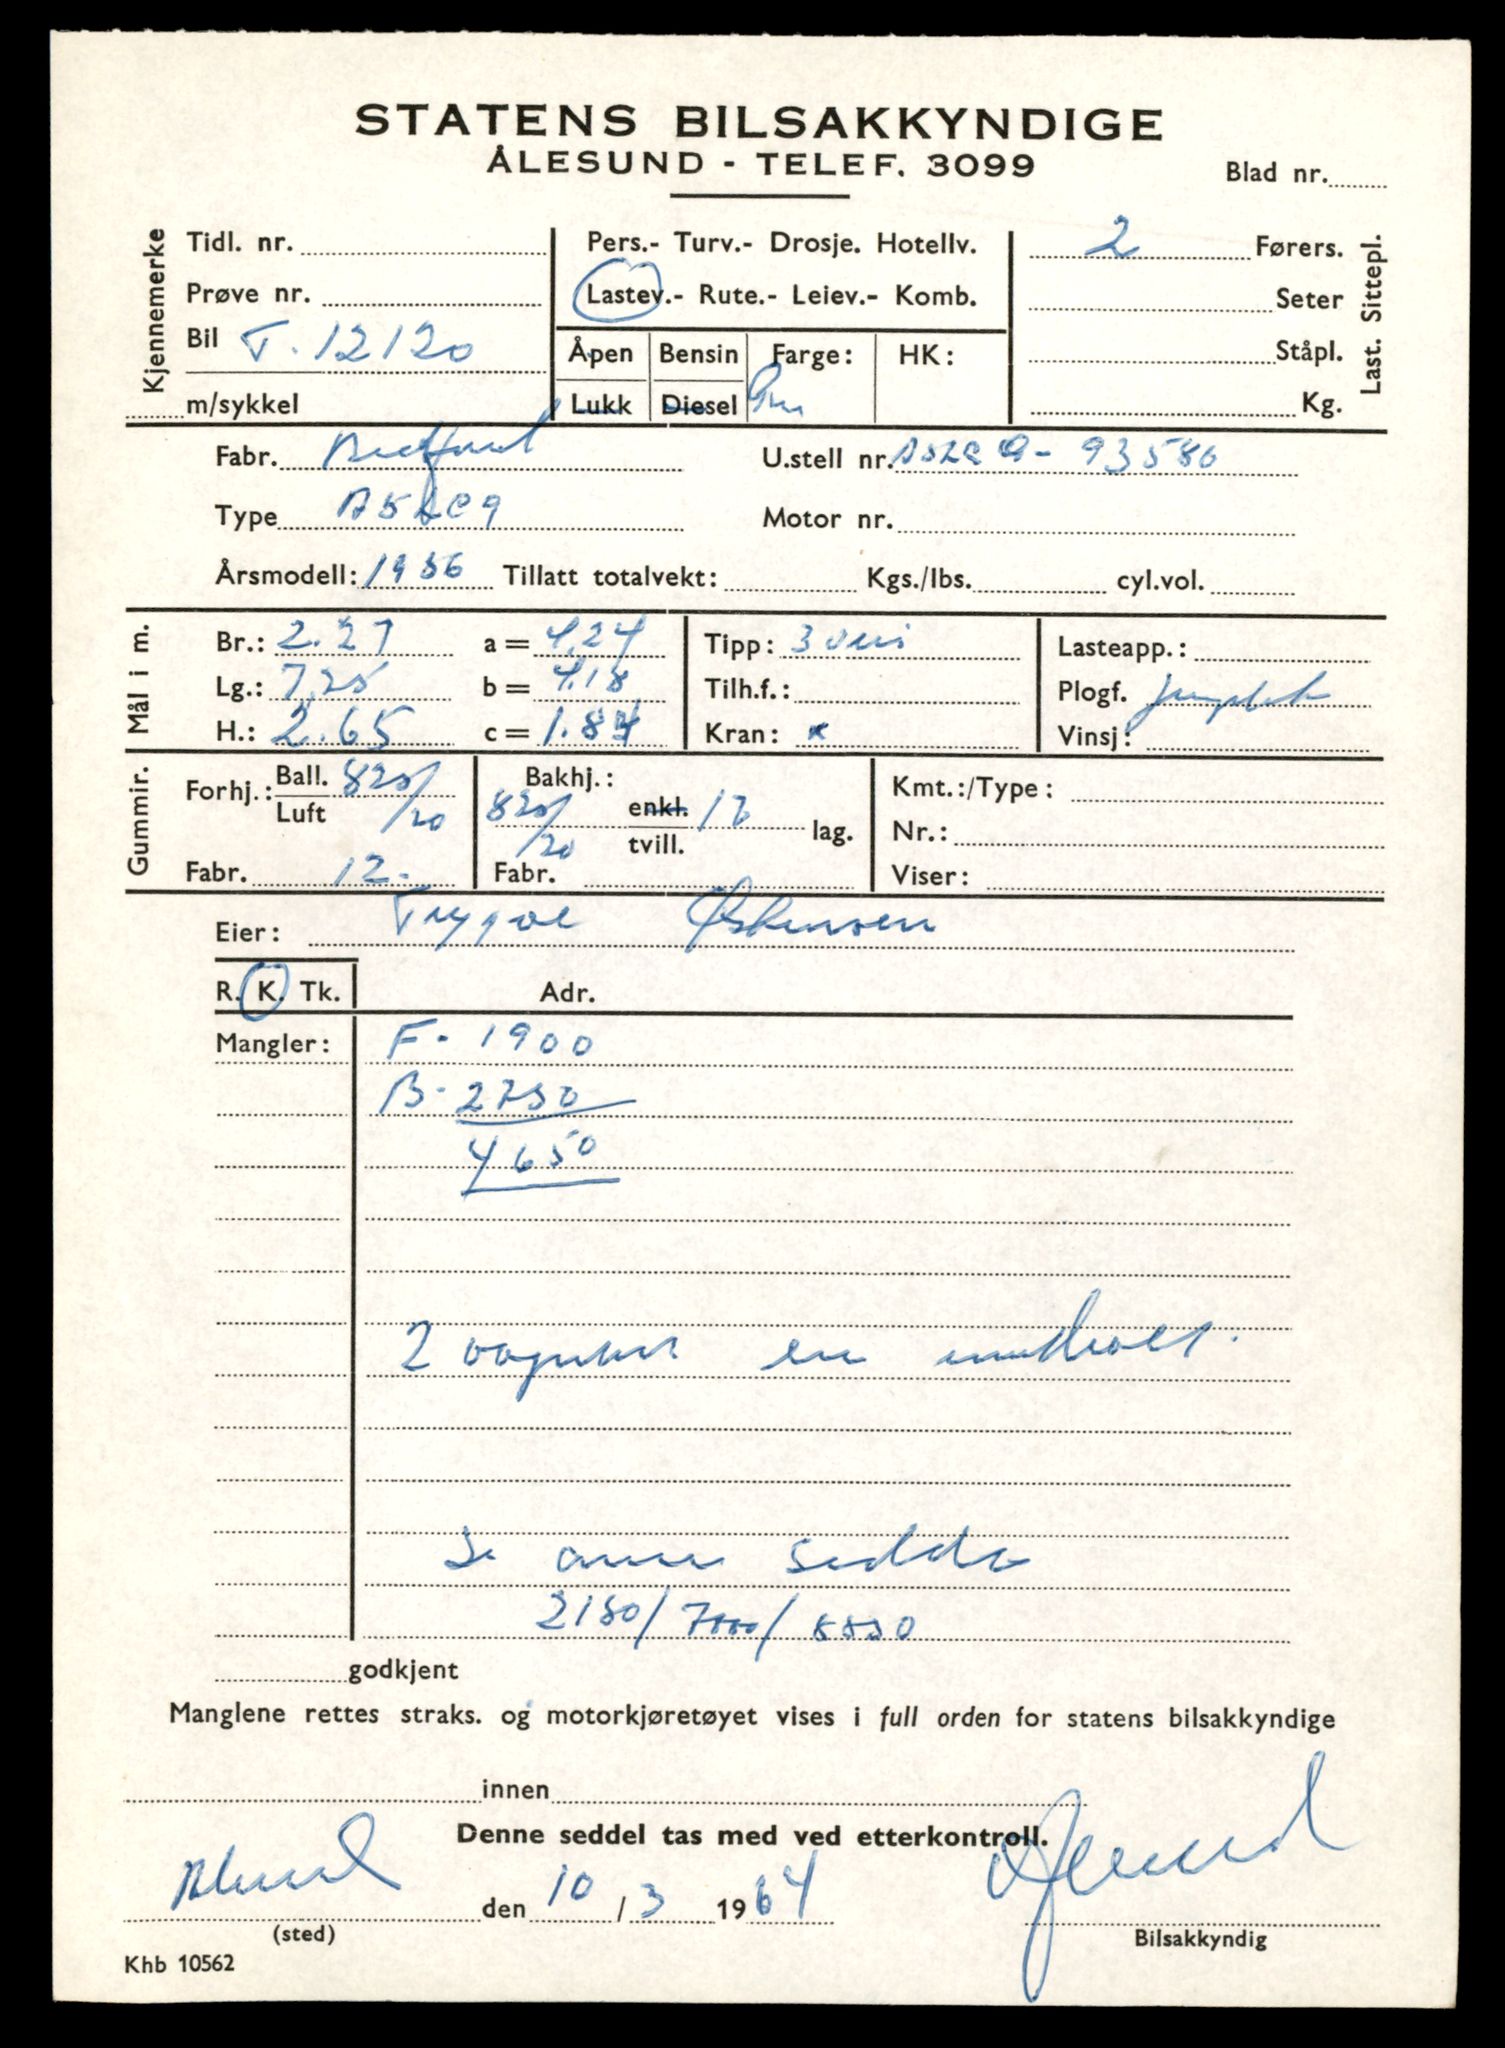 STATENS BILSAKKYNDIGE
ÅLESUND - TELEF. 3099
Blad nr.
Kjennemerke
Tidl. nr.
Prøve nr.
Bil T. 12120
m/sykkel
Pers.- Turv.- Drosje. Hotellv.
Lastev.- Rute.- Leiev.- Komb.
Åpen Bensin Farge: HK:
Lukk Diesel
2 Førers.
Seter
Ståpl.
Kg.
Last. Sittepl.
Fabr. Bedford U.stell nr. A5LC9-93580
Type A5LC9 Motor nr.
Årsmodell: 1956 Tillatt totalvekt: Kgs./lbs. cyl.vol.
Mål i m.
Br.: 2.27 a = 4,24 Tipp: 3 veis Lasteapp.:
Lg.: 7,25 b = 4,18 Tilh.f.: Plogf.
H.: 2.65 c = 1.84 Kran: x Vinsj:
Gummir.
Forhj.: Ball. 825/20 Bakhj.: Kmt.:/Type:
Luft 825/20 enkl. 12 lag. Nr.:
tvill.
Fabr. 12- Fabr. Viser:
Eier: Trygve Østensen
R. K. Tk. Adr.
Mangler: F- 1900
B- 2750
4650
2
Se annen seddel
2150/7000/
godkjent
Manglene rettes straks. og motorkjøretøyet vises i full orden for statens bilsakkyndige
innen
Denne seddel tas med ved etterkontroll.
Ålesund den 10/3 1964
(sted) Bilsakkyndig
Khb 10562